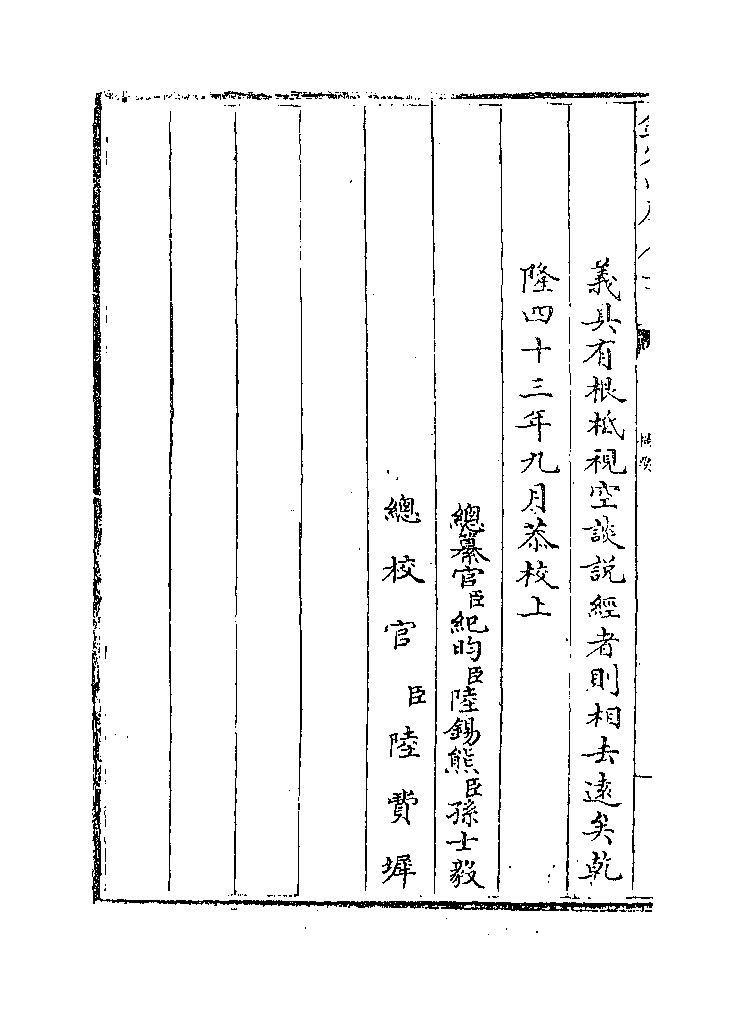 義具有根柢視空談説經者則相去遠矣乾
隆四十三年九月恭校上
總纂官臣紀昀臣陸錫熊臣孫士毅
總校官臣陸費墀